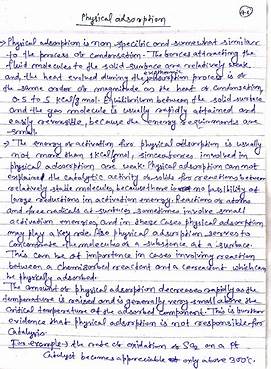 Physical adsorption
→ Physical adsorption is non specific and somewhat similar
to the process of condensation. The forces attracting the
fluid molecules to the solid surface are relatively weak,
and the heat evolved during the exothermic adsorption process is of
the same order of magnitude as the heat of condensation,
0.5 to 5 kcal/g mol. Equilibrium between the solid surface
and the gas molecule is usually rapidly attained and
easily reversible, because the energy requirements are
small.
→ The energy of activation for physical adsorption is usually
not more than 1 kcal/gmol, since forces involved in
physical adsorption are weak. Physical adsorption can not
explained the catalytic activity of solids for reactions between
relatively stable molecules, because there is no possibility of
large reductions in activation energy. Reactions of atoms
and free radicals at surfaces sometimes involve small
activation energies, and in these cases physical adsorption
may play a key role. Also physical adsorption serves to
concentrate the molecules of a substance at a surface.
This can be of importance in cases involving reaction
between a chemisorbed reactant and a coreactant which can
be physically adsorbed.
The amount of physical adsorption decreases rapidly as the
temperature is raised and is generally very small above the
critical temperature of the adsorbed component. This is further
evidence that physical adsorption is not responsible for
Catalysis.
For example → the rate of oxidation of SO2 on a Pt
Catalyst becomes appreciable only above 300°C.